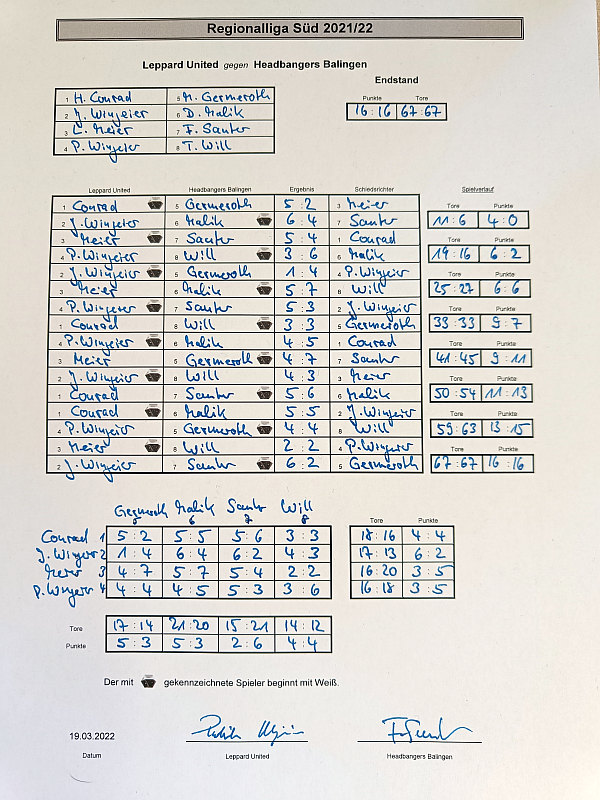 Regionalliga Süd 2021/22
Leppard United gegen Headbangers Balingen
Endstand
Punkte Tore
16:16 67:67
1 H. Conrad 5 M. Germeroth
2 J. Wingeier 6 D. Malik
3 L. Meier 7 F. Sauter
4 P. Wingeier 8 T. Will
Leppard United Headbangers Balingen Ergebnis Schiedsrichter Spielverlauf
1 Conrad 5 Germeroth 5:2 3 Meier Tore Punkte
2 J. Wingeier 6 Malik 6:4 7 Sauter 11:6 4:0
3 Meier 7 Sauter 5:4 1 Conrad Tore Punkte
4 P. Wingeier 8 Will 3:6 6 Malik 19:16 6:2
2 J. Wingeier 5 Germeroth 1:4 4 P. Wingeier Tore Punkte
3 Meier 6 Malik 5:7 8 Will 25:27 6:6
4 P. Wingeier 7 Sauter 5:3 2 J. Wingeier Tore Punkte
1 Conrad 8 Will 3:3 5 Germeroth 33:33 9:7
4 P. Wingeier 6 Malik 4:5 1 Conrad Tore Punkte
3 Meier 5 Germeroth 4:7 7 Sauter 41:45 9:11
2 J. Wingeier 8 Will 4:3 3 Meier Tore Punkte
1 Conrad 7 Sauter 5:6 6 Malik 50:54 11:13
1 Conrad 6 Malik 5:5 2 J. Wingeier Tore Punkte
4 P. Wingeier 5 Germeroth 4:4 8 Will 59:63 13:15
3 Meier 8 Will 2:2 4 P. Wingeier Tore Punkte
2 J. Wingeier 7 Sauter 6:2 5 Germeroth 67:67 16:16
Germeroth Malik Sauter Will
5 6 7 8 Tore Punkte
Conrad 1 5:2 5:5 5:6 3:3 18:16 4:4
J. Wingeier 2 1:4 6:4 6:2 4:3 17:13 6:2
Meier 3 4:7 5:7 5:4 2:2 16:20 3:5
P. Wingeier 4 4:4 4:5 5:3 3:6 16:18 3:5
Tore 17:14 21:20 15:21 14:12
Punkte 5:3 5:3 2:6 4:4
Der mit gekennzeichnete Spieler beginnt mit Weiß.
19.03.2022
Datum Leppard United Headbangers Balingen